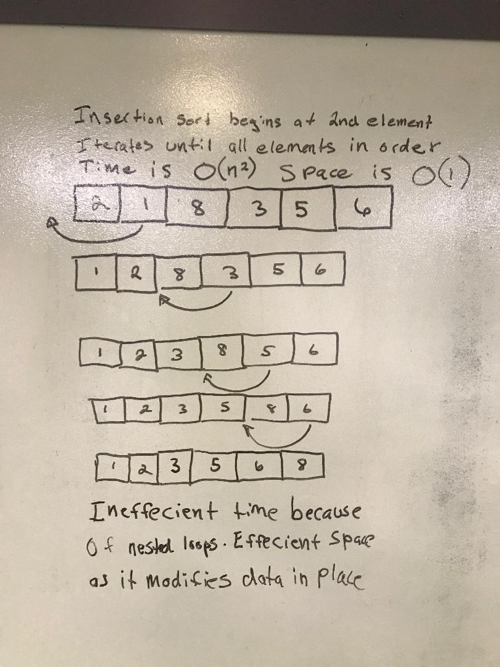 Insection sort begins at 2nd element
Iterates until all elements in order
Time is O(n²) Space is O(1)
2 1 8 3 5 6
1 2 8 3 5 6
1 2 3 8 5 6
1 2 3 5 8 6
1 2 3 5 6 8
Ineffecient time because
Of nested loops. Effecient Space
as it modifies data in place